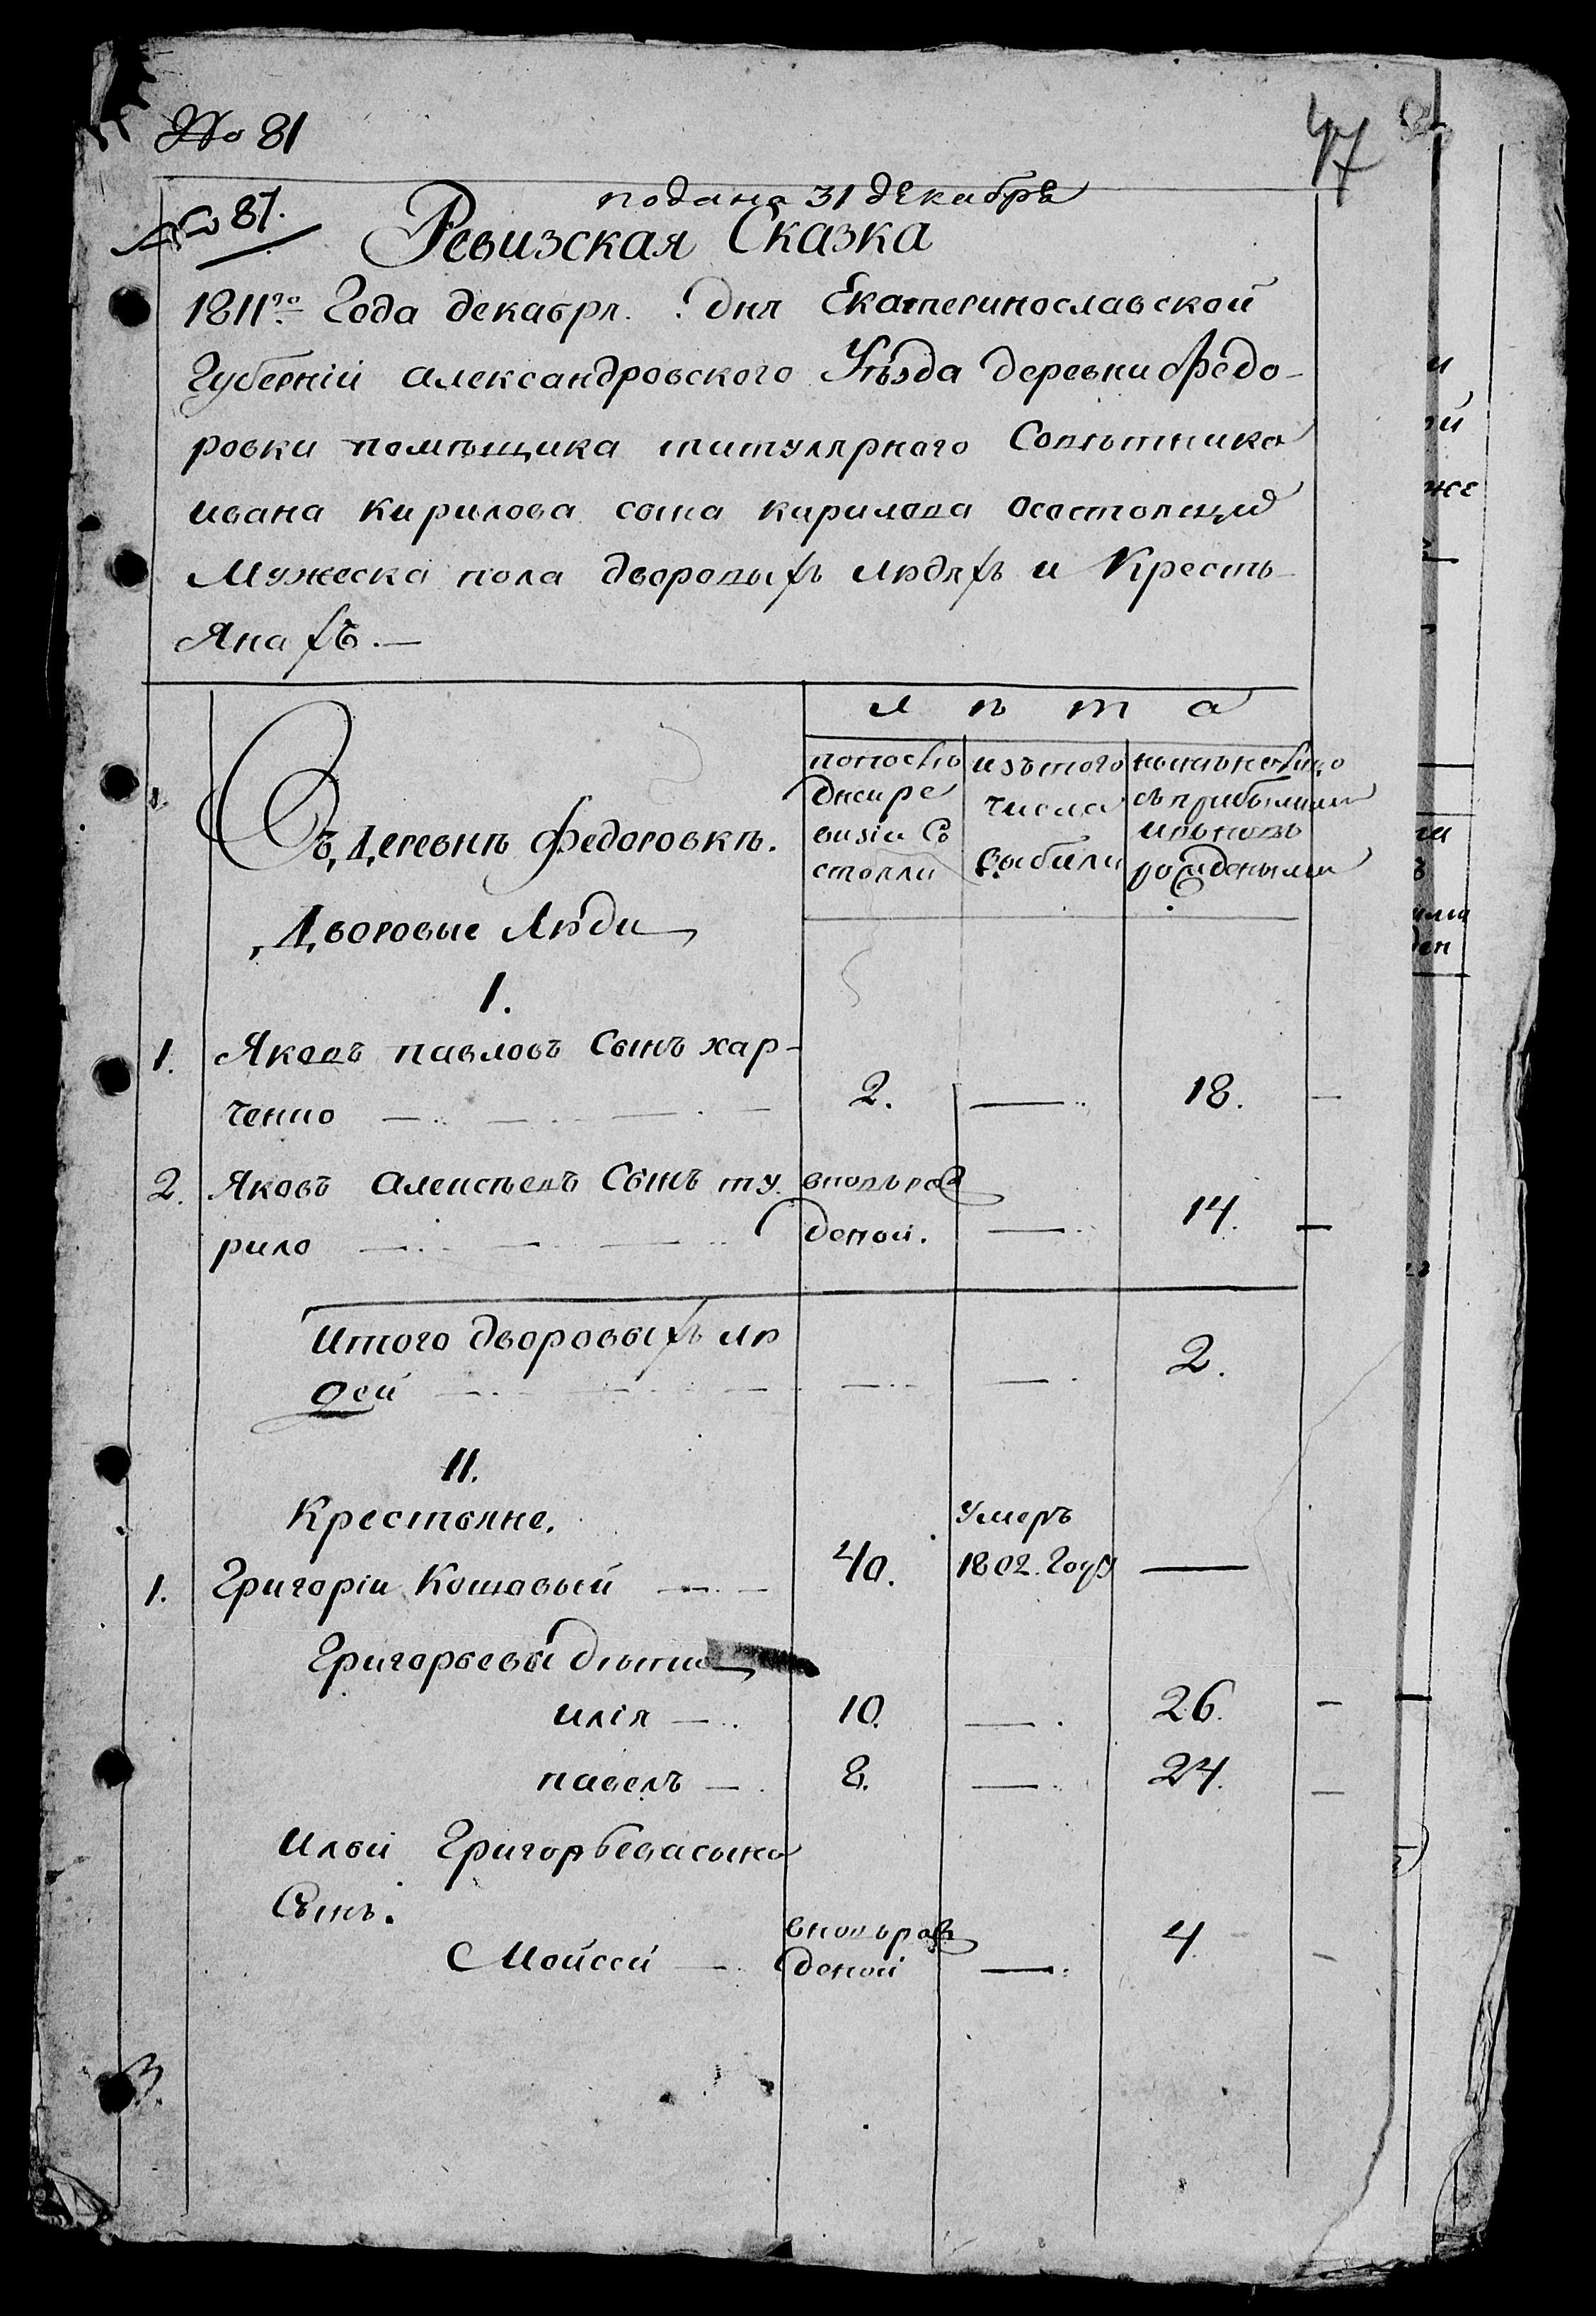 No 81
47
подана 31 декабря
No 81.
Ревизская Сказка
1811го Года декабря. : дня Екатеринославской
Губерніи александровского Уѣзда деревни Федо-
ровки помѣщика титулярного Совѣтника
ивана кирилова сына кирилова осостоящих
Мужеска пола дворовыхъ людяхъ и Кресть-
Янахъ.—
лѣта
Въ деревнѣ Федоровкѣ.
попослѣ
дней ре
визіи Со
стояли
изътого
числа
выбыли
нынѣналицо
съприбылыми
ивновь
рожденными
Дворовые Люди
I.
1. Яковъ павловъ Сынъ хар-
ченко 2. — 18. —
2. Яковъ алексѣевъ Сынъ ту вновьрож
рило деной. — 14. —
Итого дворовыхъ лю
дей — — 2.
II.
Крестьяне.
Умеръ
1. Григоріи Кошовый — 40. 1802. Году —
Григорьевы дѣти
илія — 10. — 26. —
павелъ — 8. — 24. —
Ильи Григорьевасына
Сынъ.
Мойсей — вновьрож
деной — 4. —
3.